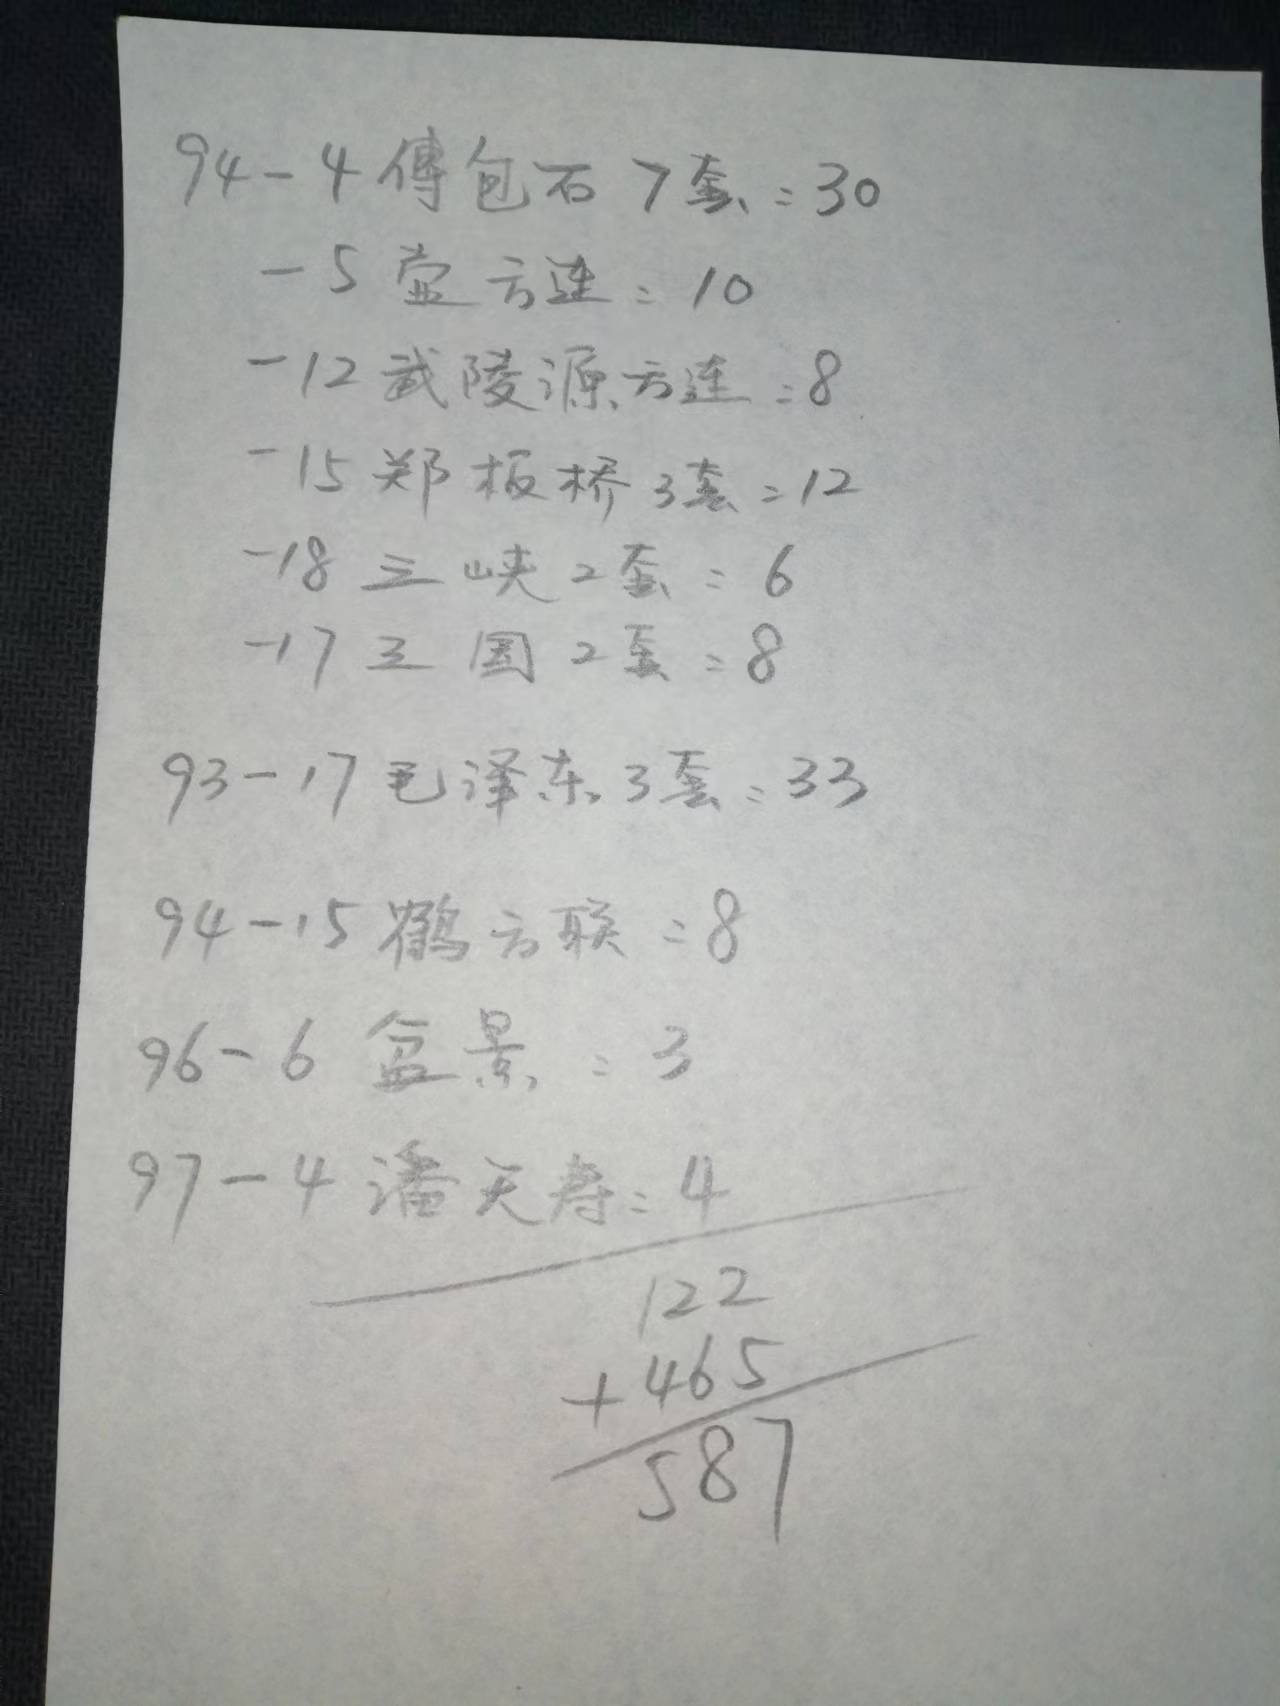 94-4傅包石7套:30
-5壶方连:10
-12武陵源方连:8
-15郑板桥3套:12
-18三峡2套:6
-17三国2套:8
93-17毛泽东3套:33
94-15鹤方联:8
96-6盆景:3
97-4潘天寿:4
122
+465
587